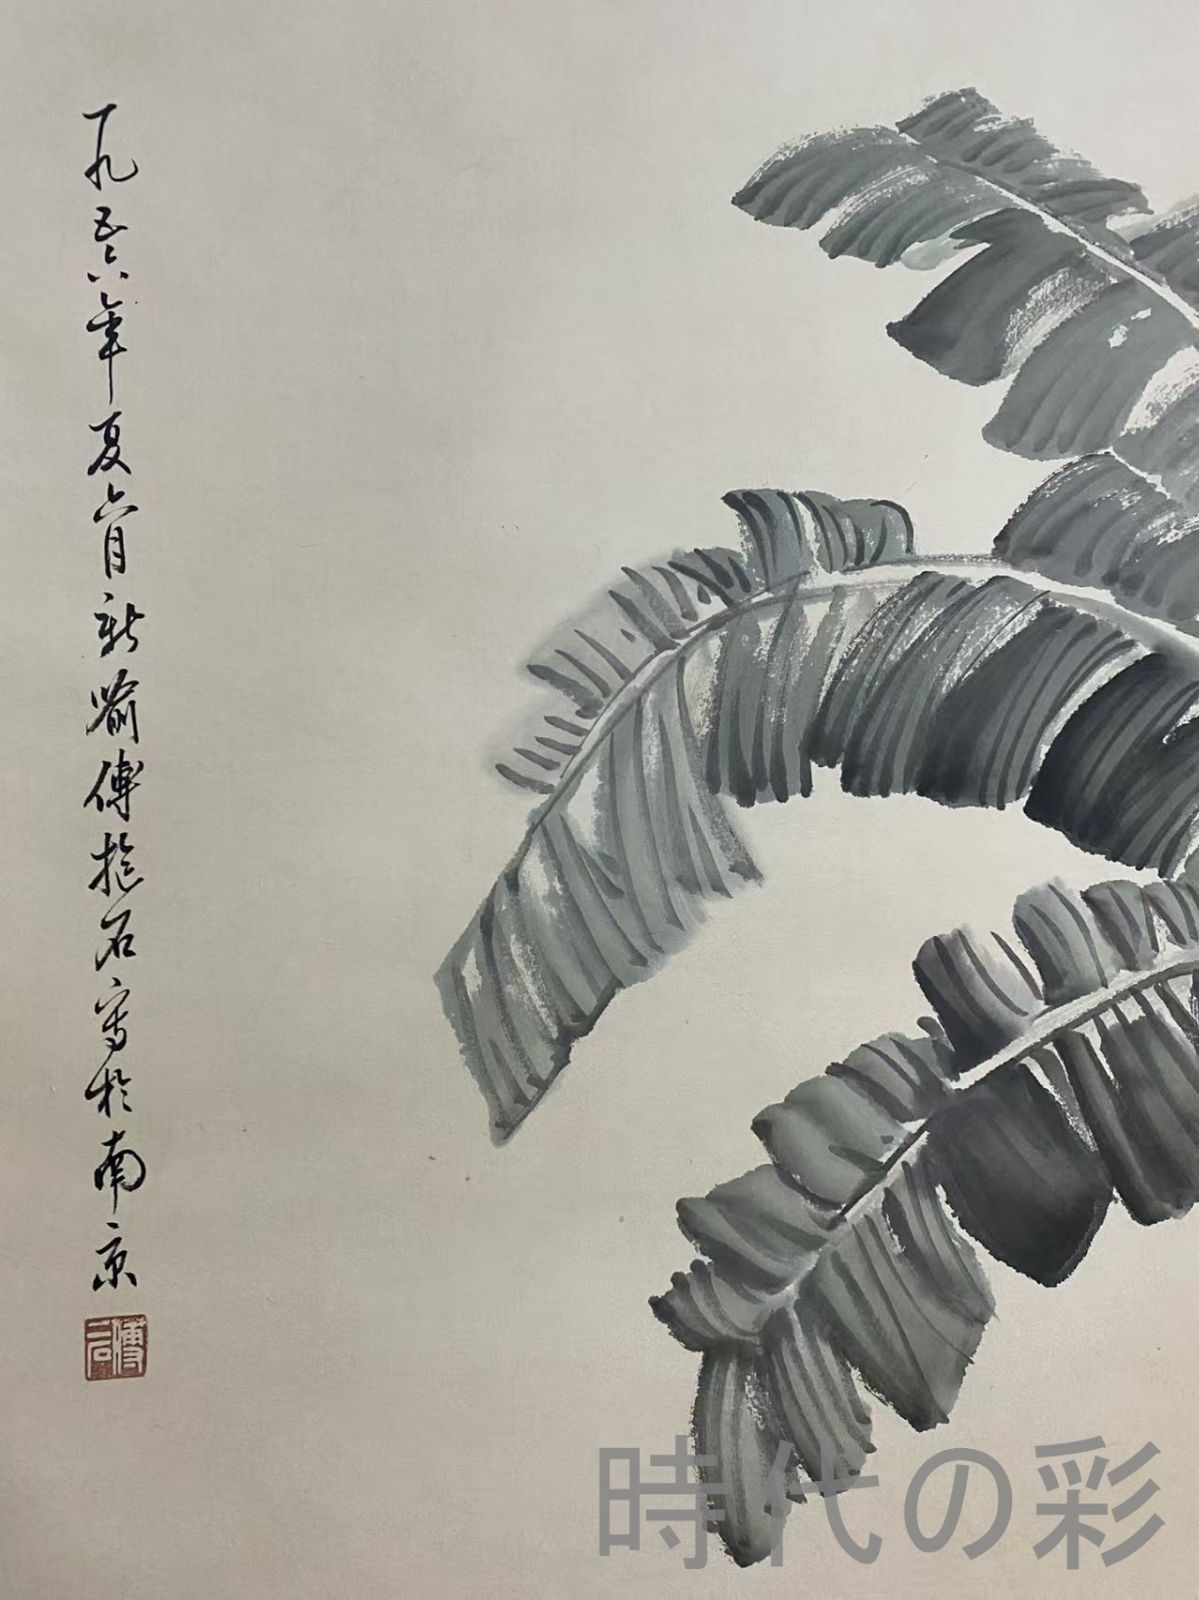 一九五六年夏六月新喻傅抱石写於南京
傅
時代の彩